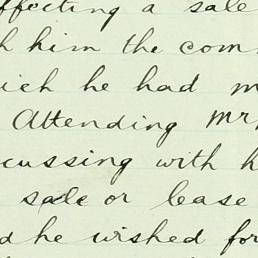 ffecting a sale
h him the com
ich he had m
Attending Mr
cussing with h
sale or lease
d he wished for